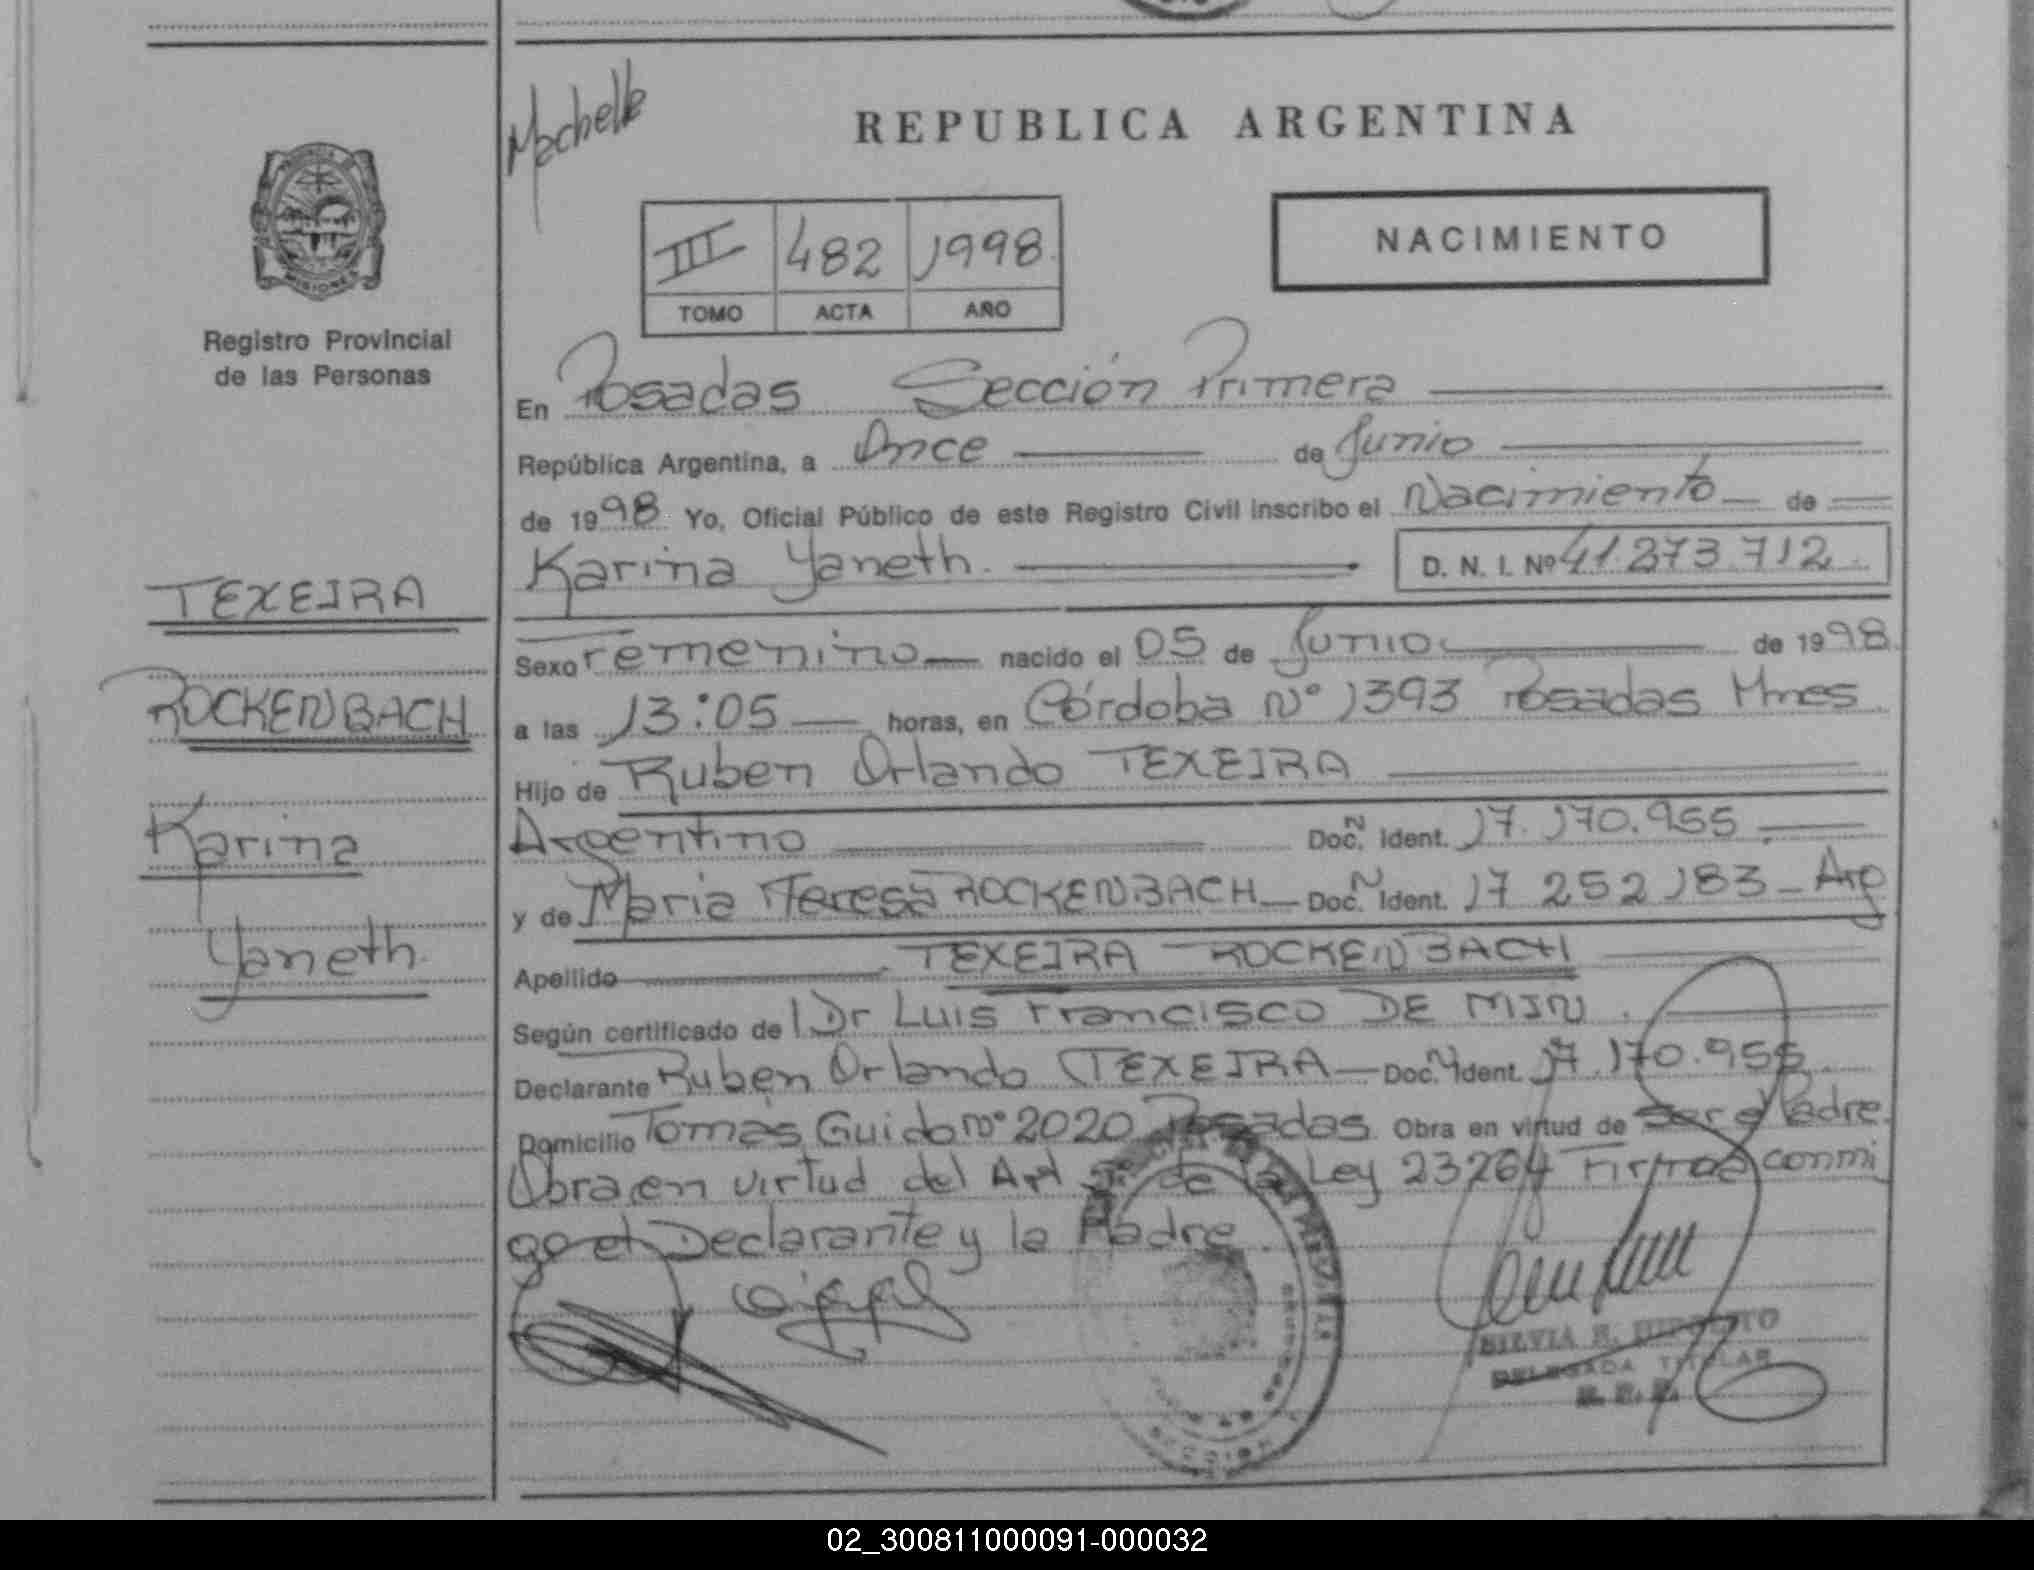 Machelle
REPUBLICA ARGENTINA
III 482 1998
TOMO ACTA AÑO
NACIMIENTO
PROVINCIA DE
MISIONES
Registro Provincial
de las Personas
En Posadas Sección Primera
República Argentina, a Once de Junio
de 1998 Yo, Oficial Público de este Registro Civil inscribo el Nacimiento de
Karina Yaneth. D. N. I. Nº 41.273.712
TEXEIRA
ROCKENBACH
Karina
Yaneth.
Sexo Femenino nacido el 05 de Junio de 1998
a las 13:05 horas, en Córdoba Nº 1393 Posadas Mnes
Hijo de Ruben Orlando TEXEIRA
Argentino Doc. N Ident. 17.170.955
y de Maria Teresa ROCKENBACH Doc. N Ident. 17 252 183 - Arg
Apellido TEXEIRA ROCKENBACH
Según certificado de Dr Luis Francisco DE MIN
Declarante Ruben Orlando TEXEIRA Doc. N Ident. 17.170.955
Domicilio Tomás Guido nº 2020 Posadas. Obra en virtud de ser el Padre.
Obra en virtud del Art 5º de la Ley 23264 Firman conmi
go el Declarante y la Madre.
SILVIA
DELEGADA TITULAR
02_300811000091-000032